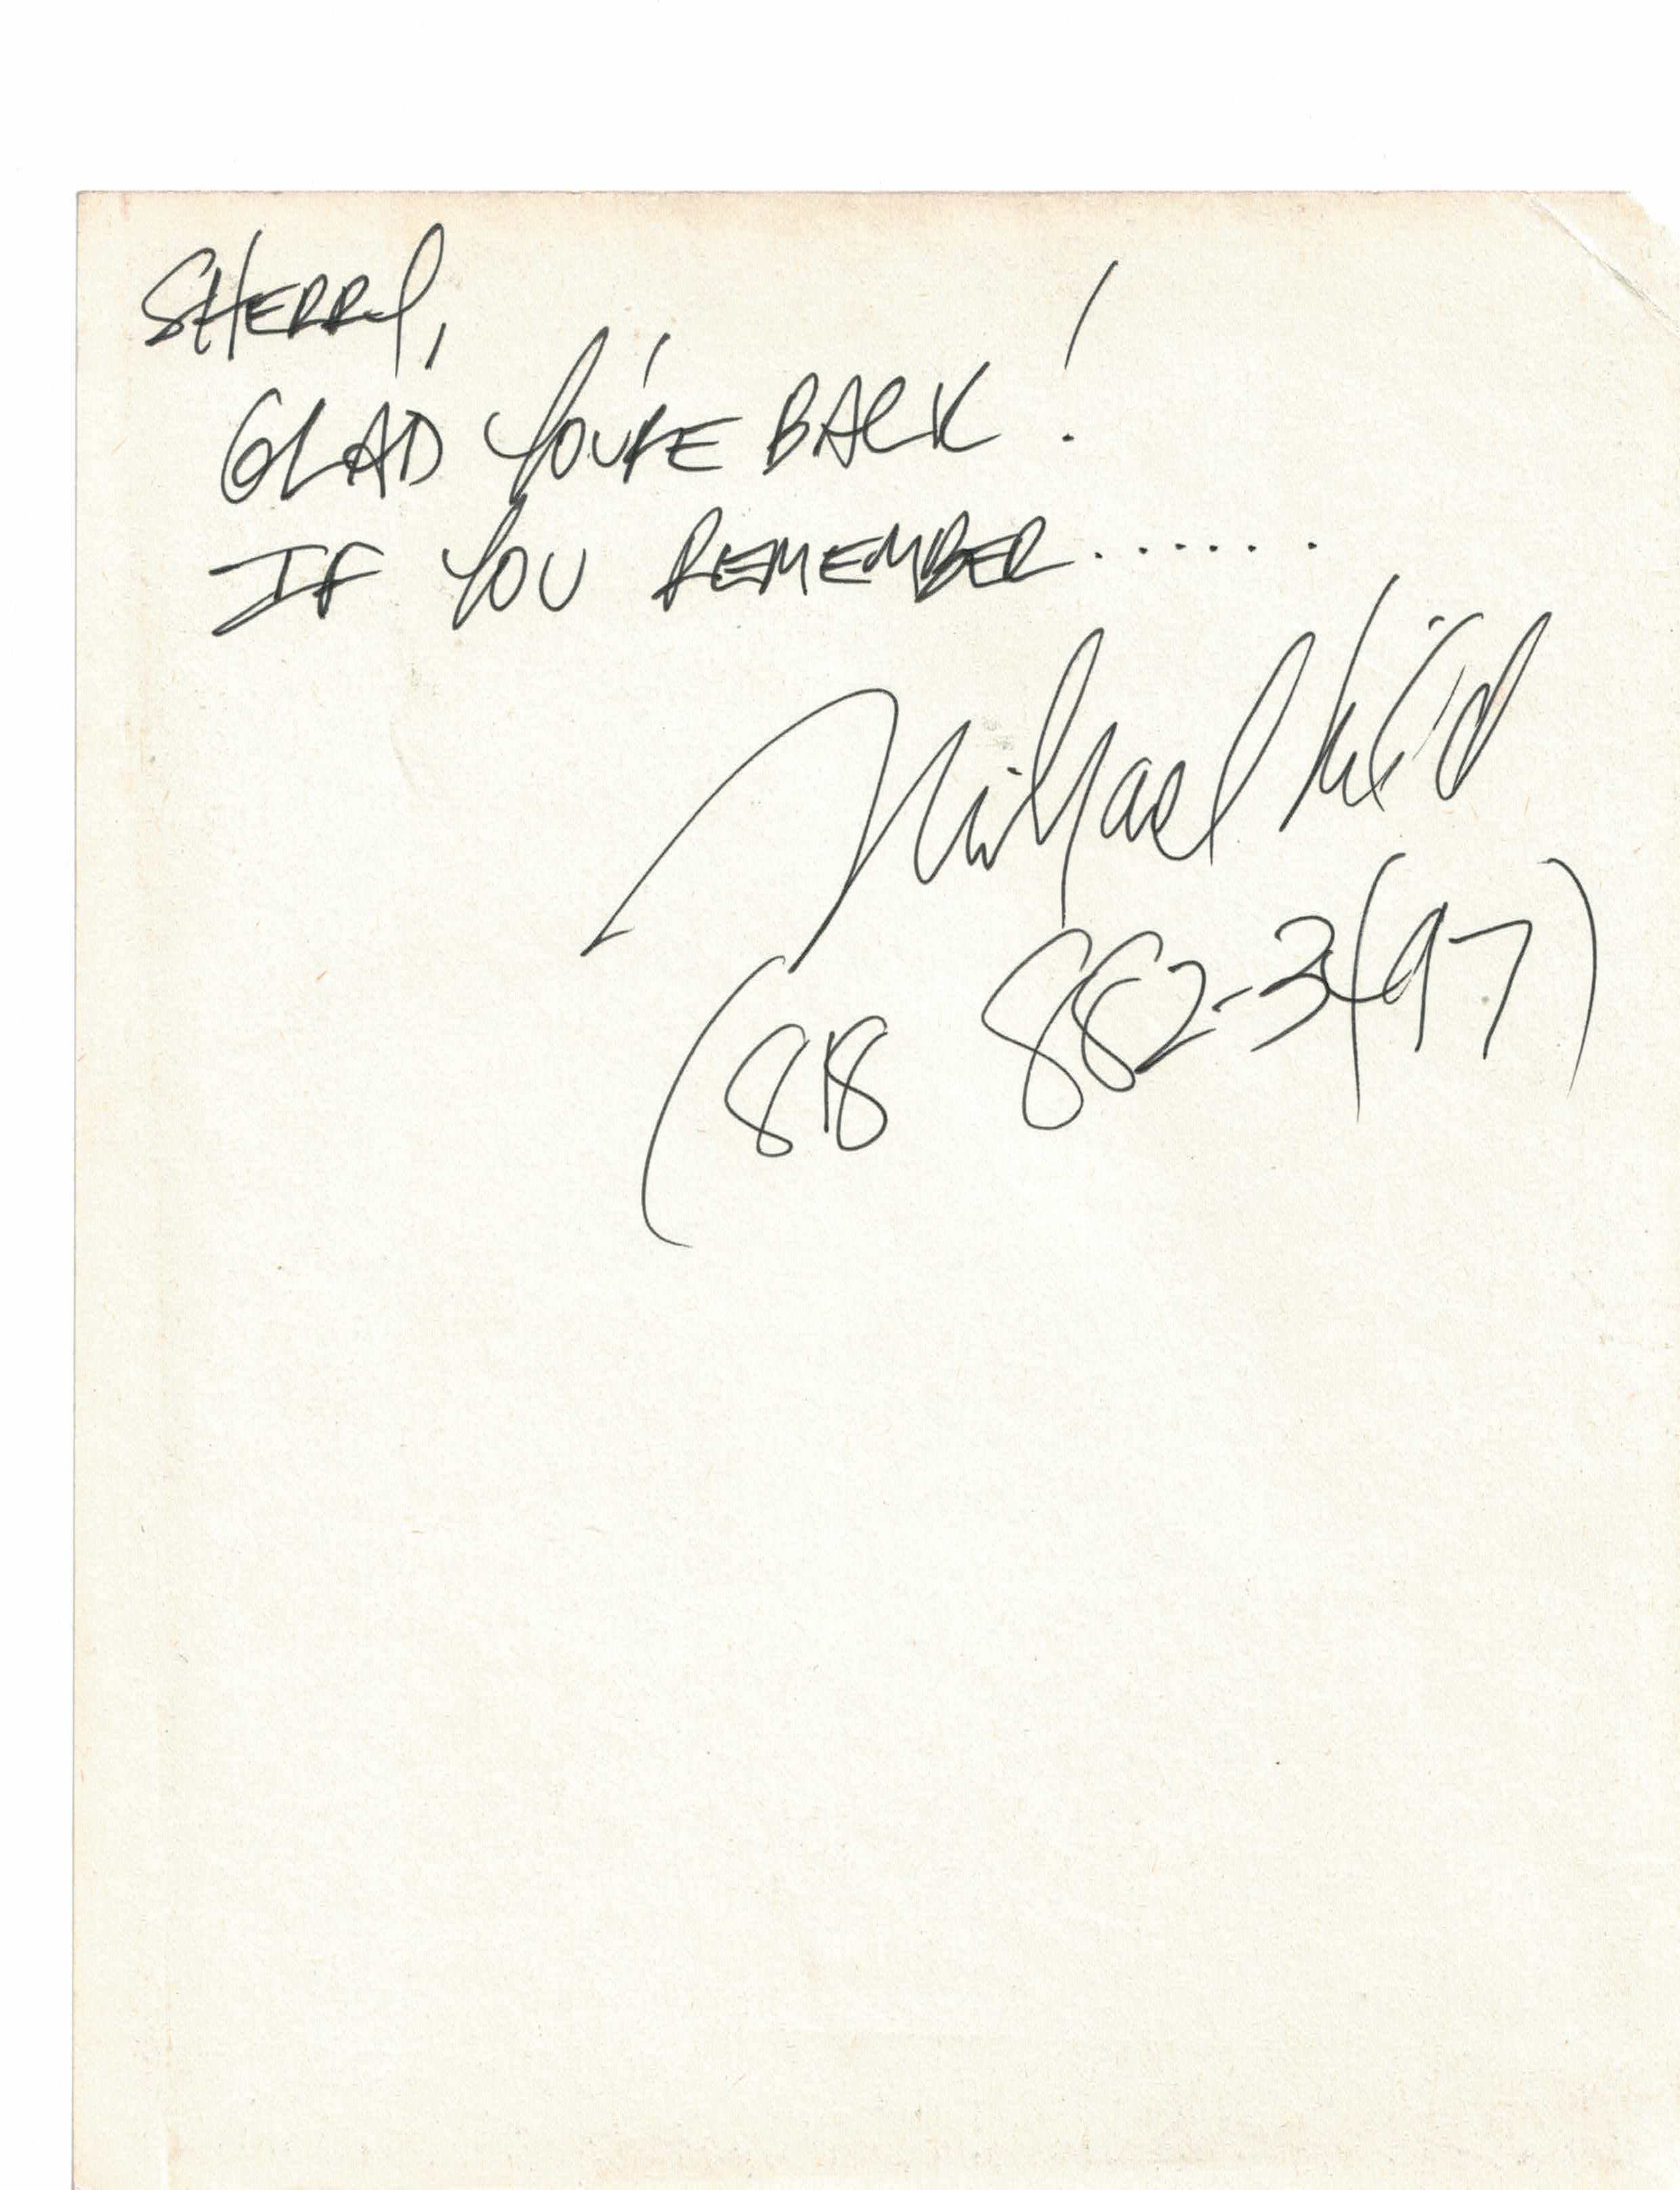 SHERRY,
GLAD YOU'RE BACK!
IF YOU REMEMBER......
Michael
(818 882-3497)